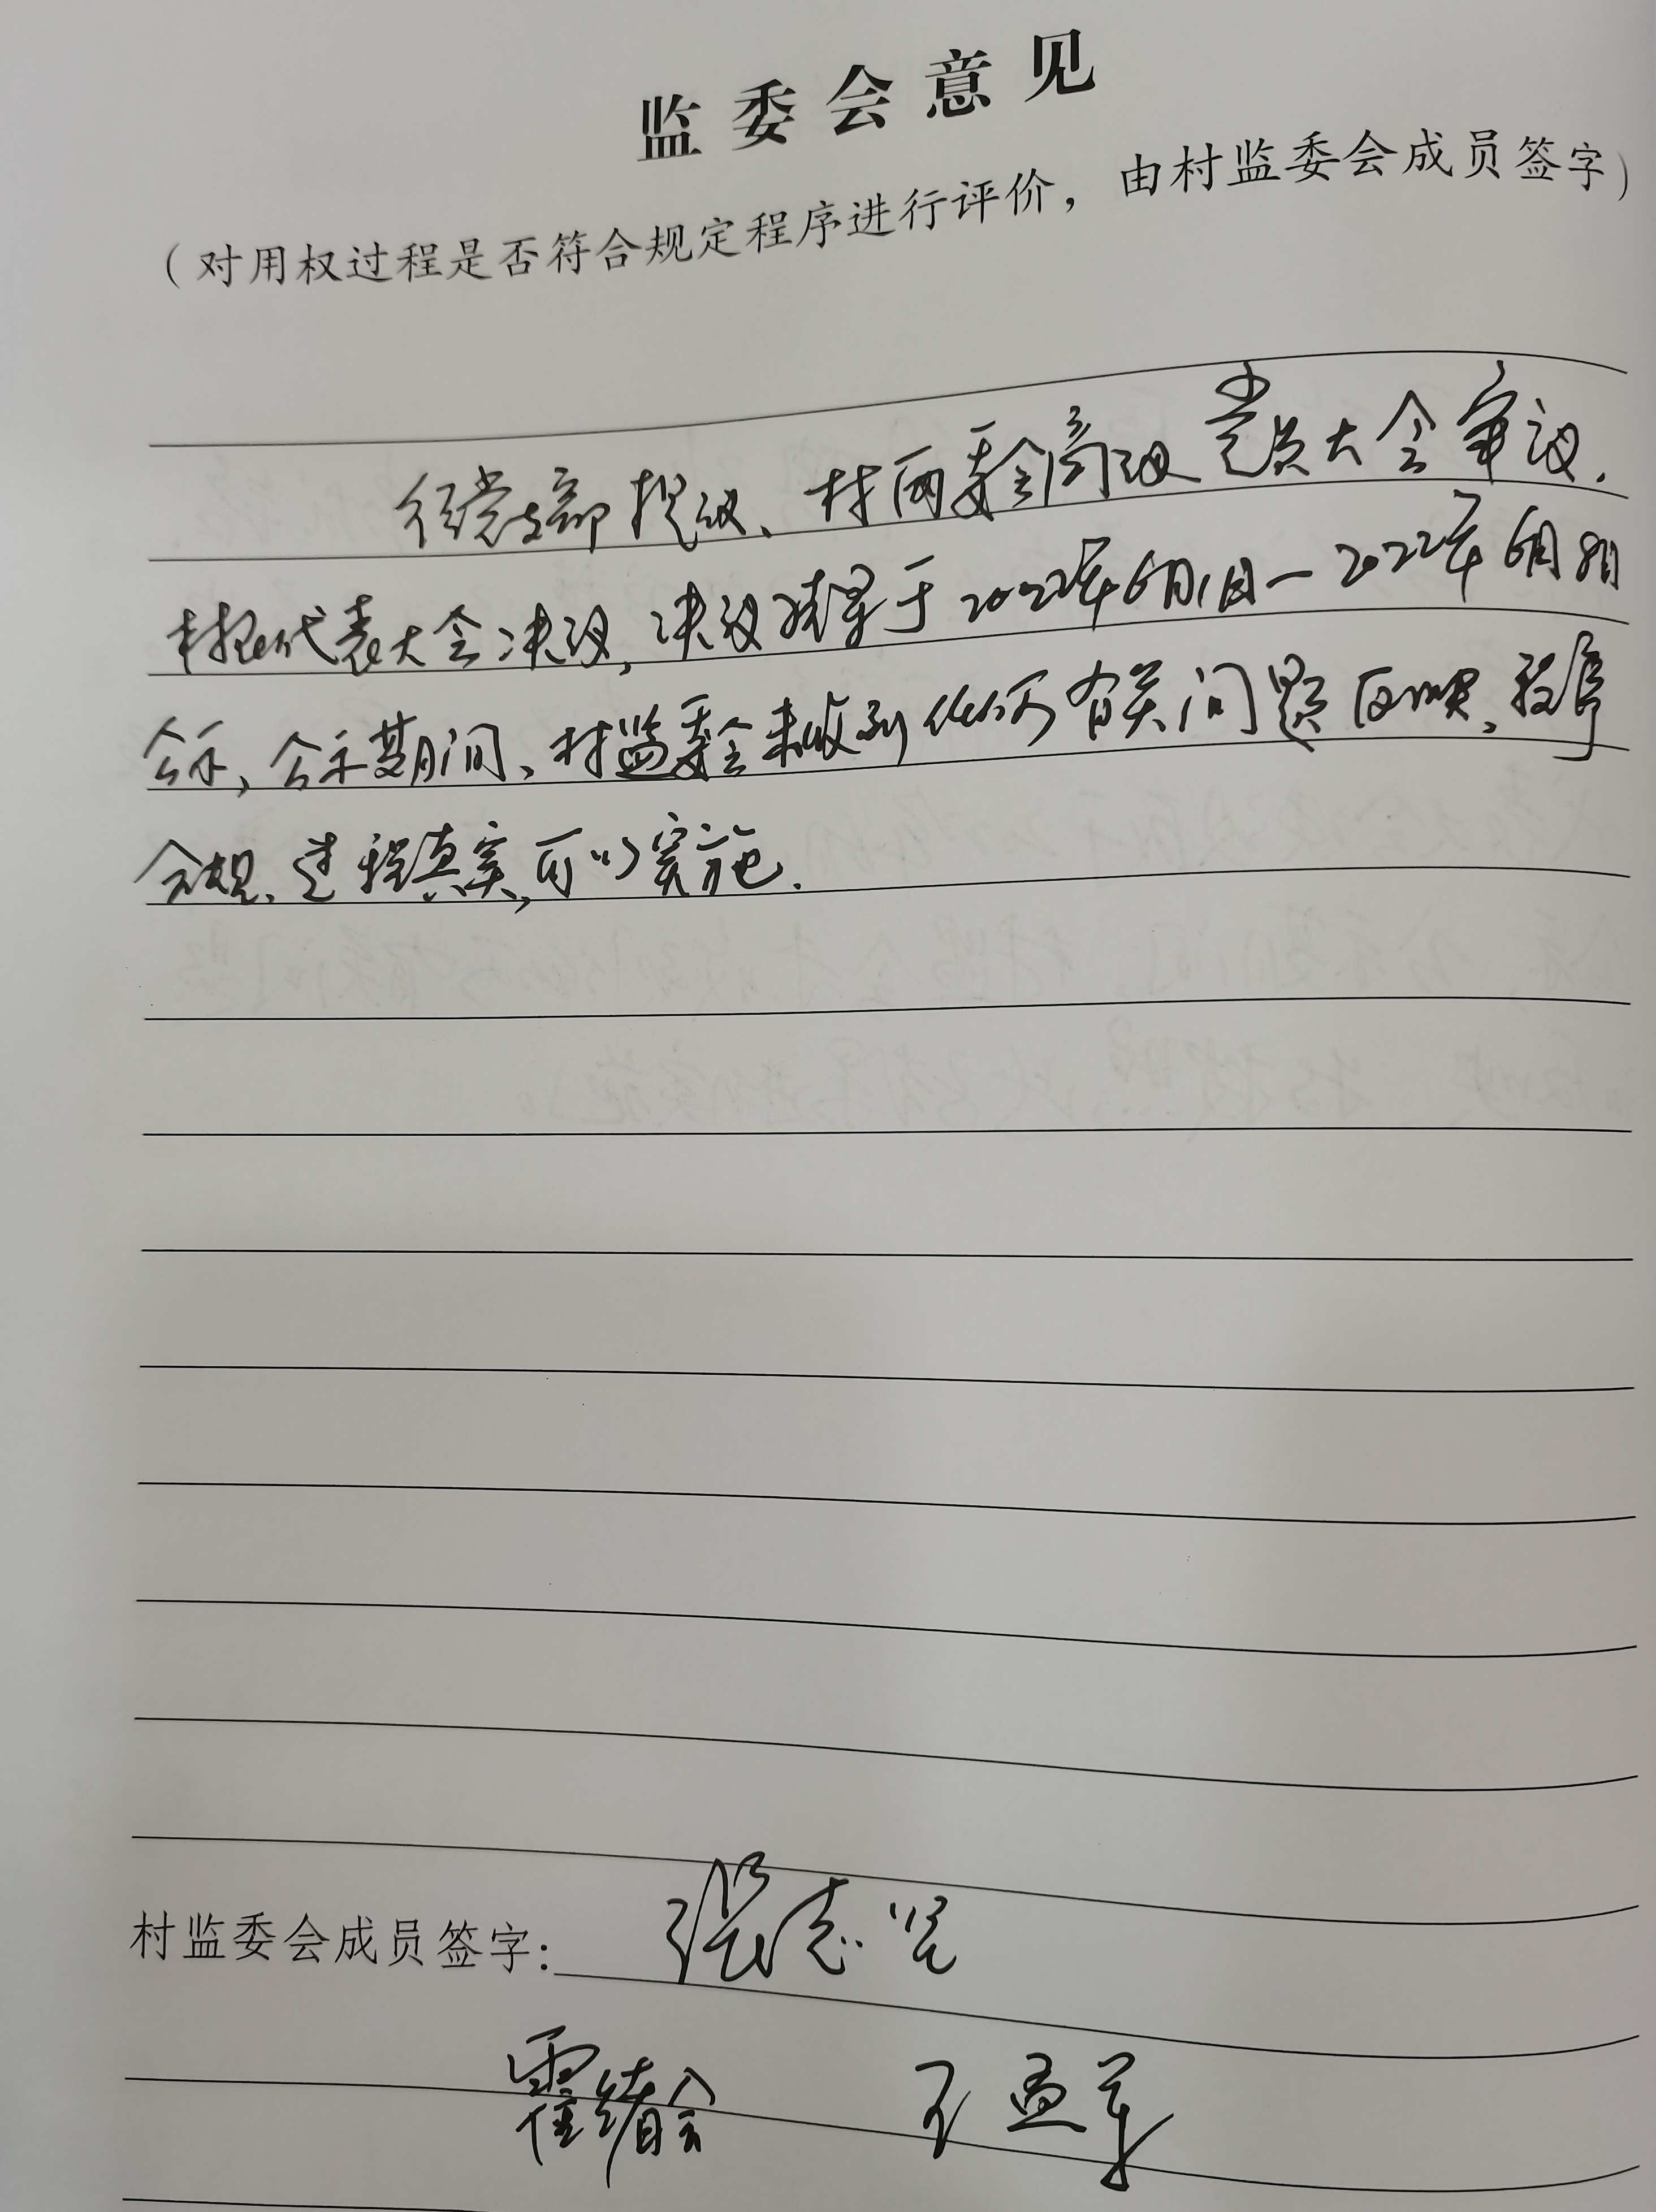 监委会意见
（对用权过程是否符合规定程序进行评价，由村监委会成员签字）
经党支部提议、村两委会商议党员大会审议.
村民代表大会决议,决议结果于2022年6月1日—2022年6月8日
公示、公示期间、村监委会未收到任何有关问题反映、程序
合规、过程真实,可以实施.
村监委会成员签字: 张志坚
霍绪会 王孟军